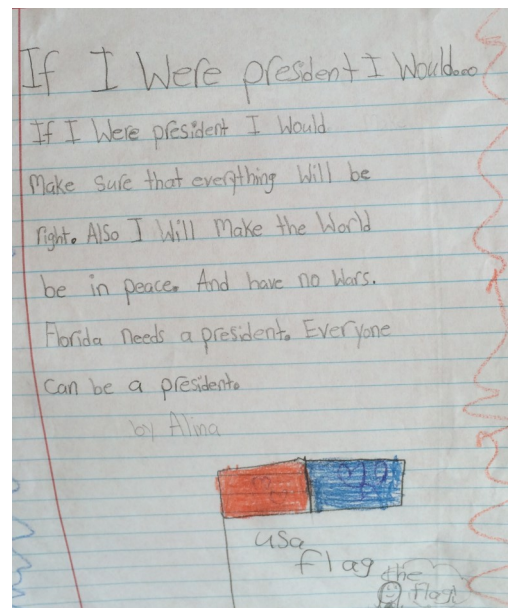 If I Were president I Would...
If I Were president I Would
Make sure that everything Will be
right. Also I Will Make the World
be in peace. And have no Wars.
Florida Needs a president. Everyone
can be a president.
by Alina
usa
flag
the
flag